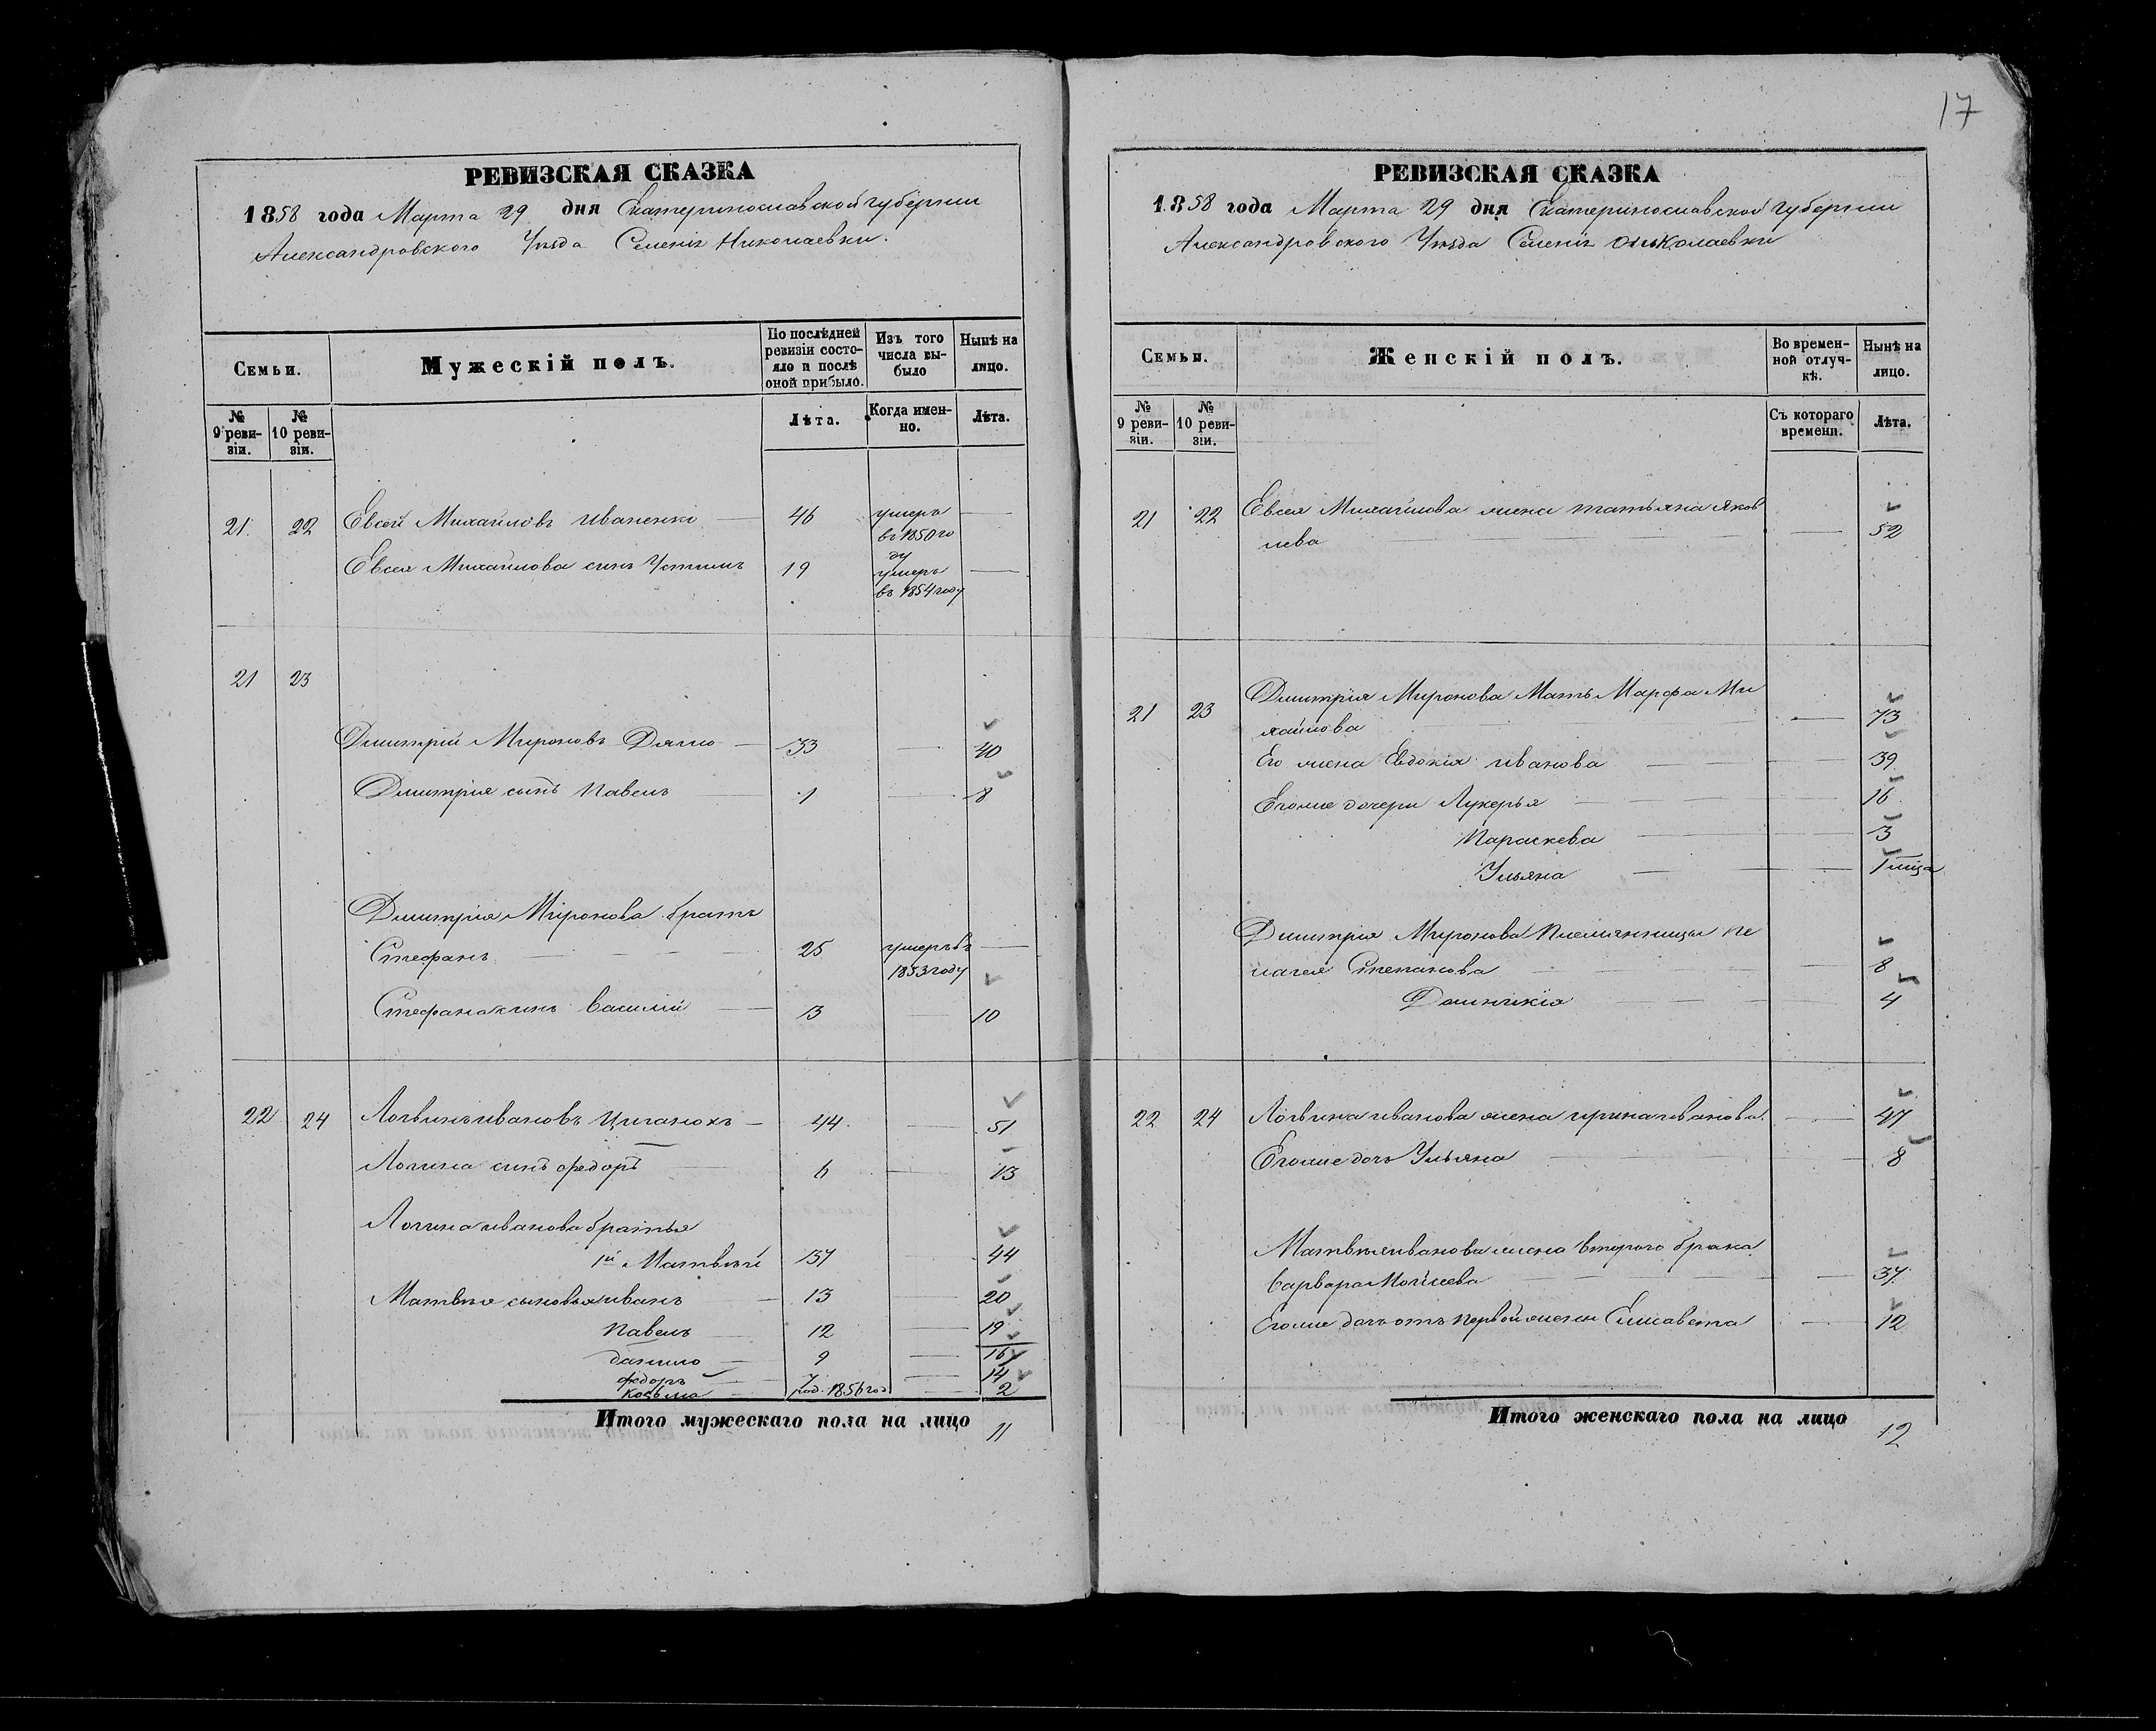 17
РЕВИЗСКАЯ СКАЗКА
1858 года Марта 29 дня Екатеринославской губернии
Александровского Уѣзда Селенія Николаевки.
Семьи.
Мужескій полъ.
По послѣдней ревизіи состояло и послѣ оной прибыло.
Изъ того числа вы-было
Нынѣ на лицо.
№ 9 реви-зіи.
№ 10 реви-зіи.
Лѣта.
Когда имен-но.
Лѣта.
21. 22 Евсей Михайловъ Иваненко — 46 умеръ въ 1850 году —
Евсея Михайлова сынъ Устимъ 19 умеръ въ 1854 году —
21 23
Дмитрій Мироновъ Дяшо — 33 — 40
Дмитрія сынъ Павелъ — 1 — 8
Дмитрія Миронова братъ
Стефанъ — 25 умеръ въ 1853 году —
Стефана сынъ Василій — 3 — 10
22 24 Логвинъ Ивановъ Циганохъ — 44 — 51
Логина сынъ Федоръ — 6 — 13
Логина Иванова братья
1й Матвѣй 37 44
Матвѣя сыновья Иванъ — 13 — 20
Павелъ — 12 — 19
Данило — 9 — 16
Федоръ — 7 — 14
Козьма — род. 1856 год — 2
Итого мужескаго пола на лицо 11
РЕВИЗСКАЯ СКАЗКА
1858 года Марта 29 дня Екатеринославской Губернии
Александровского Уѣзда Селенія Николаевки
Семьи.
Женскій полъ.
Во времен-ной отлуч-кѣ.
Нынѣ на лицо.
№ 9 реви-зіи.
№ 10 реви-зіи.
Съ котораго времени.
Лѣта.
21 22 Евсея Михайлова жена Татьяна Яков
лева — — 52
21 23 Дмитрія Миронова Мать Марфа Ми
хайлова — — 73
Его жена Евдокія Иванова — — 39
Егоже дочери Лукерья — — 16
Параскева — — 3
Ульяна — — 1 мца
Дмитрія Миронова Племянницы Пе
лагея Степанова — — 8
Домникія — — 4
22 24 Логвина Иванова жена Ирина Иванова. — 47
Егоже дочь Ульяна — — 8
Матвѣя Иванова жена второго брака
Варвара Моисеева — — 37
Егоже дочь отъ первой жены Елисавета — 12
Итого женскаго пола на лицо 12